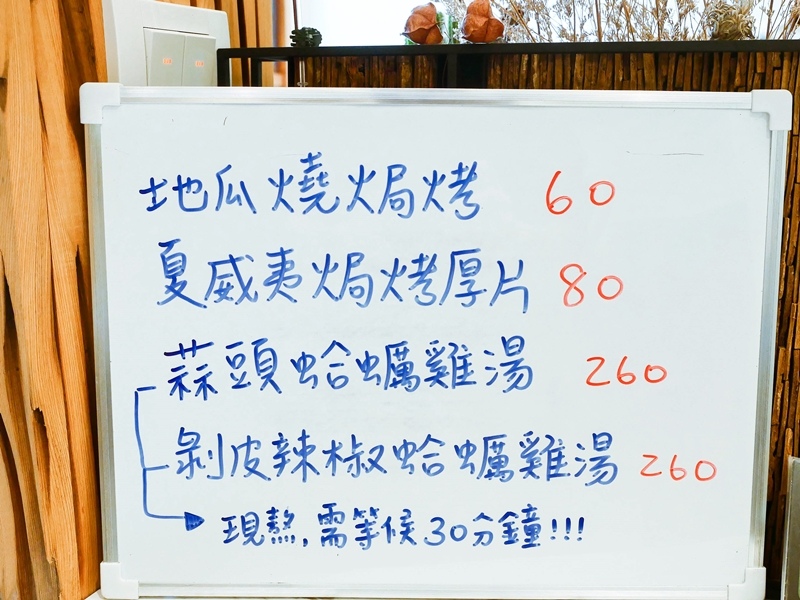 地瓜燒焗烤 60
夏威夷焗烤厚片 80
蒜頭蛤蠣雞湯 260
剝皮辣椒蛤蠣雞湯 260
現熬,需等候30分鐘!!!